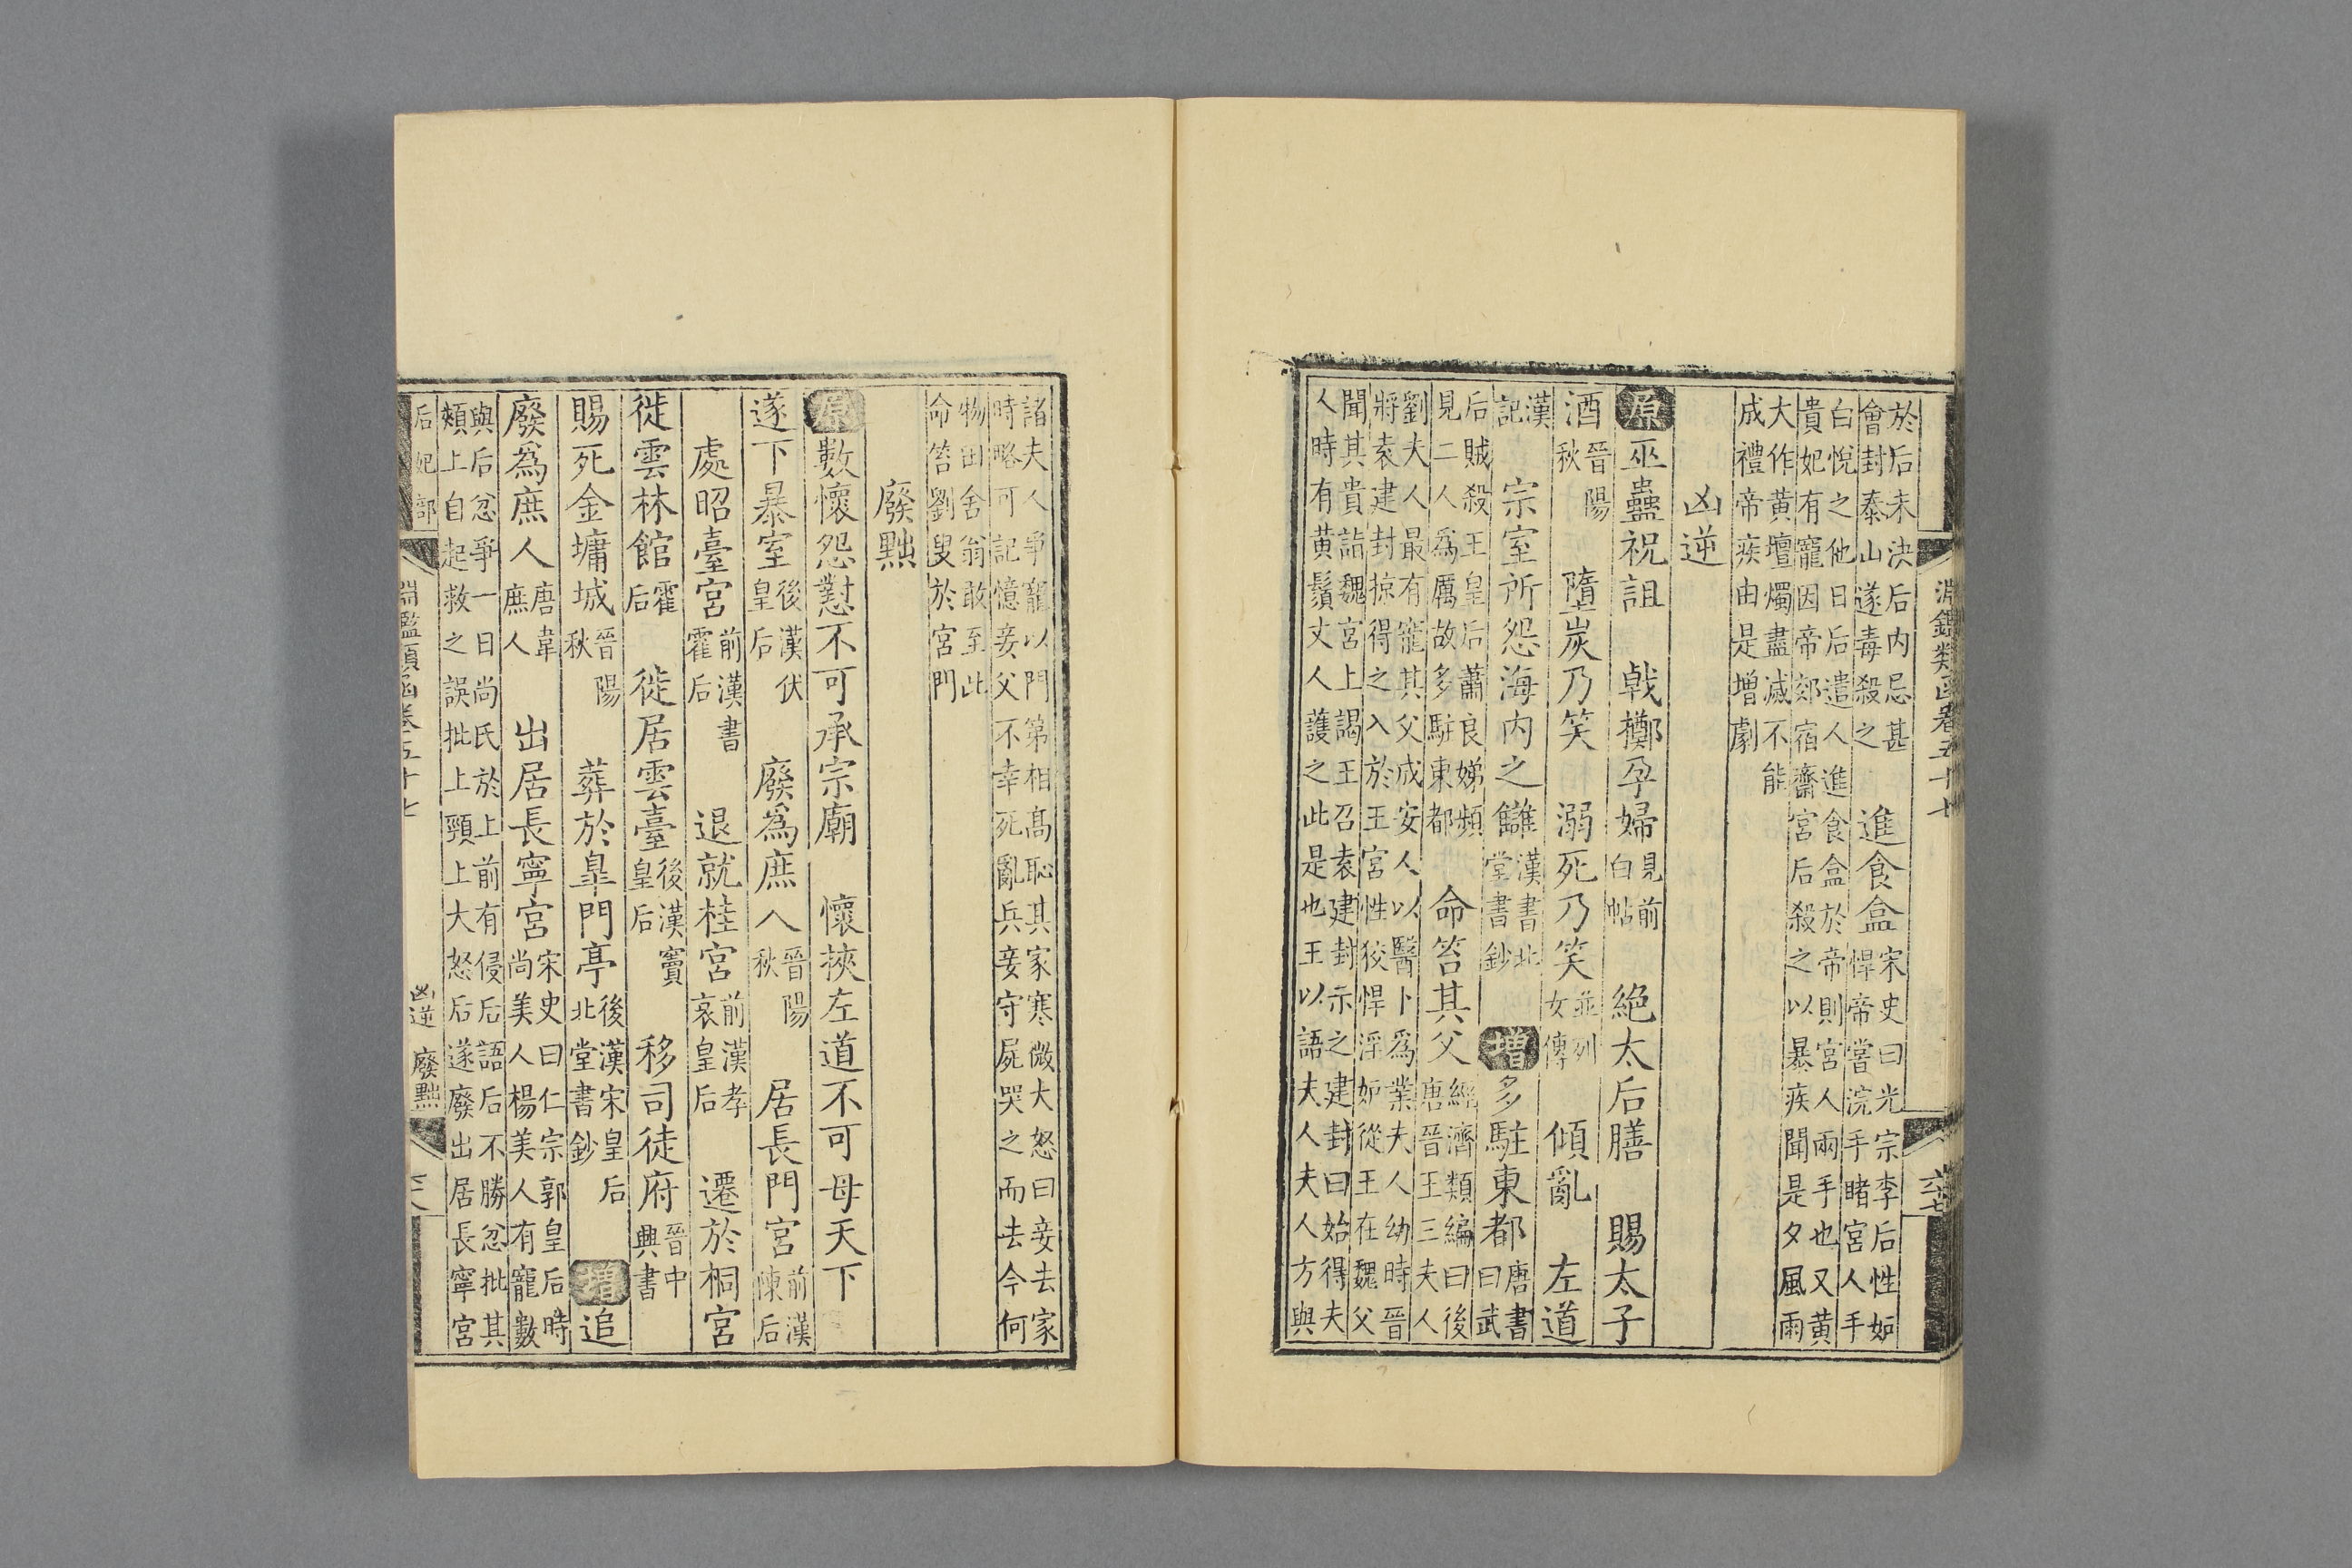 淵鑑類函卷五十七 六七
於后未決后内忌甚
會封泰山遂毒殺之 進食盒 宋史曰光宗李后性妬
悍帝嘗浣手睹宮人手
白悅之他日后遣人進食盒於帝則宮人兩手也又黃
貴妃有寵因帝郊宿齋宮后殺之以暴疾聞是夕風雨
大作黃壇燭盡滅不能
成禮帝疾由是增劇
凶逆
原 巫蠱祝詛 戟擲孕婦 見前白帖 絶太后膳 賜太子
酒 晉陽秋 墮炭乃笑 溺死乃笑 並列女傳 傾亂 左道
漢記 宗室所怨海内之讎 漢書北堂書鈔 增 多駐東都 唐書曰武
后賊殺王皇后蕭良娣頻
見二人為厲故多駐東都 命笞其父 經濟類編曰後
唐晉王三夫人
劉夫人最有寵其父成安人以醫卜為業夫人幼時晉
將袁建封掠得之入於王宮性狡悍淫妬從王在魏父
聞其貴詣魏宮上謁王召袁建封示之建封曰始得夫
人時有黃鬚丈人護之此是也王以語夫人夫人方與
諸夫人爭寵以門第相高恥其家寒微大怒曰妾去家
時略可記憶妾父不幸死亂兵妾守屍哭之而去今何
物田舍翁敢至此
命笞劉叟於宮門
廢黜
原 數懷怨懟不可承宗廟 懷挾左道不可母天下
遂下暴室 後漢伏皇后 廢爲庶人 晉陽秋 居長門宮 前漢陳后
處昭臺宮 前漢書霍后 退就桂宮 前漢孝哀皇后 遷於桐宮
徙雲林館 霍后 徙居雲臺 後漢竇皇后 移司徒府 晉中興書
賜死金墉城 晉陽秋 葬於臯門亭 後漢宋皇后北堂書鈔 增 追
廢爲庶人 唐韋庶人 出居長寧宮 宋史曰仁宗郭皇后時
尚美人楊美人有寵數
與后忿爭一日尚氏於上前有侵后語后不勝忿批其
頰上自起救之誤批上頸上大怒后遂廢出居長寧宮
后妃部 淵鑑類函卷五十七 凶逆 廢黜